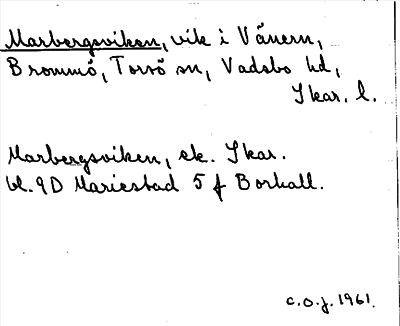 Marbergsviken, vik i Vänern,
Brommö, Torsö sn, Vadsbo hd,
Skar. l.
Marbergsviken, ek. Skar.
bl. 9D Mariestad 5 f Borhall.
c.o.j. 1961.